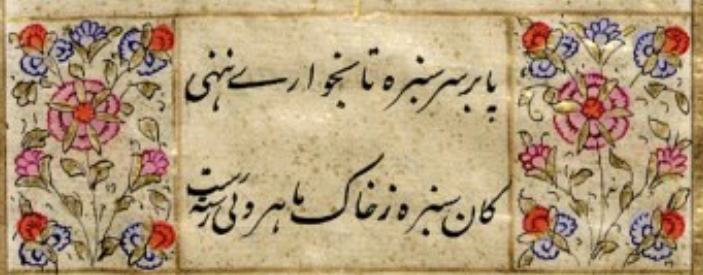 پا بر سر سبزه تا بخواری ننهی
کان سبزه ز خاک ماهرویی رسته است